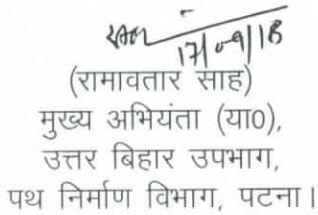 17/09/18
(रामावतार साह)
मुख्य अभियंता (या0),
उत्तर बिहार उपभाग,
पथ निर्माण विभाग, पटना।